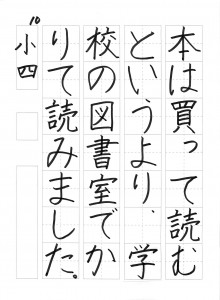 本は買って読む
というより、学
校の図書室でか
りて読みました。
10
小四